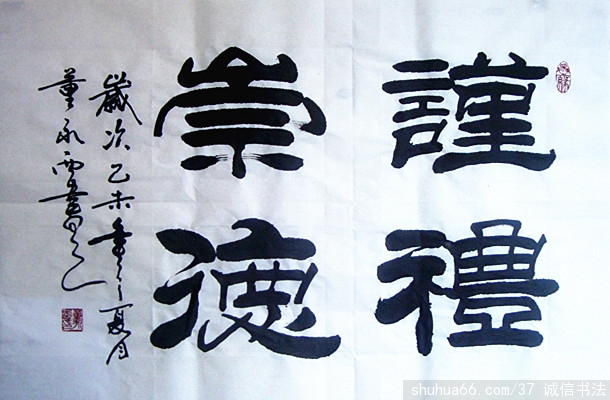 謹禮
崇德
歲次乙未年之夏月
董永西書
shuhua66.com/37 诚信书法